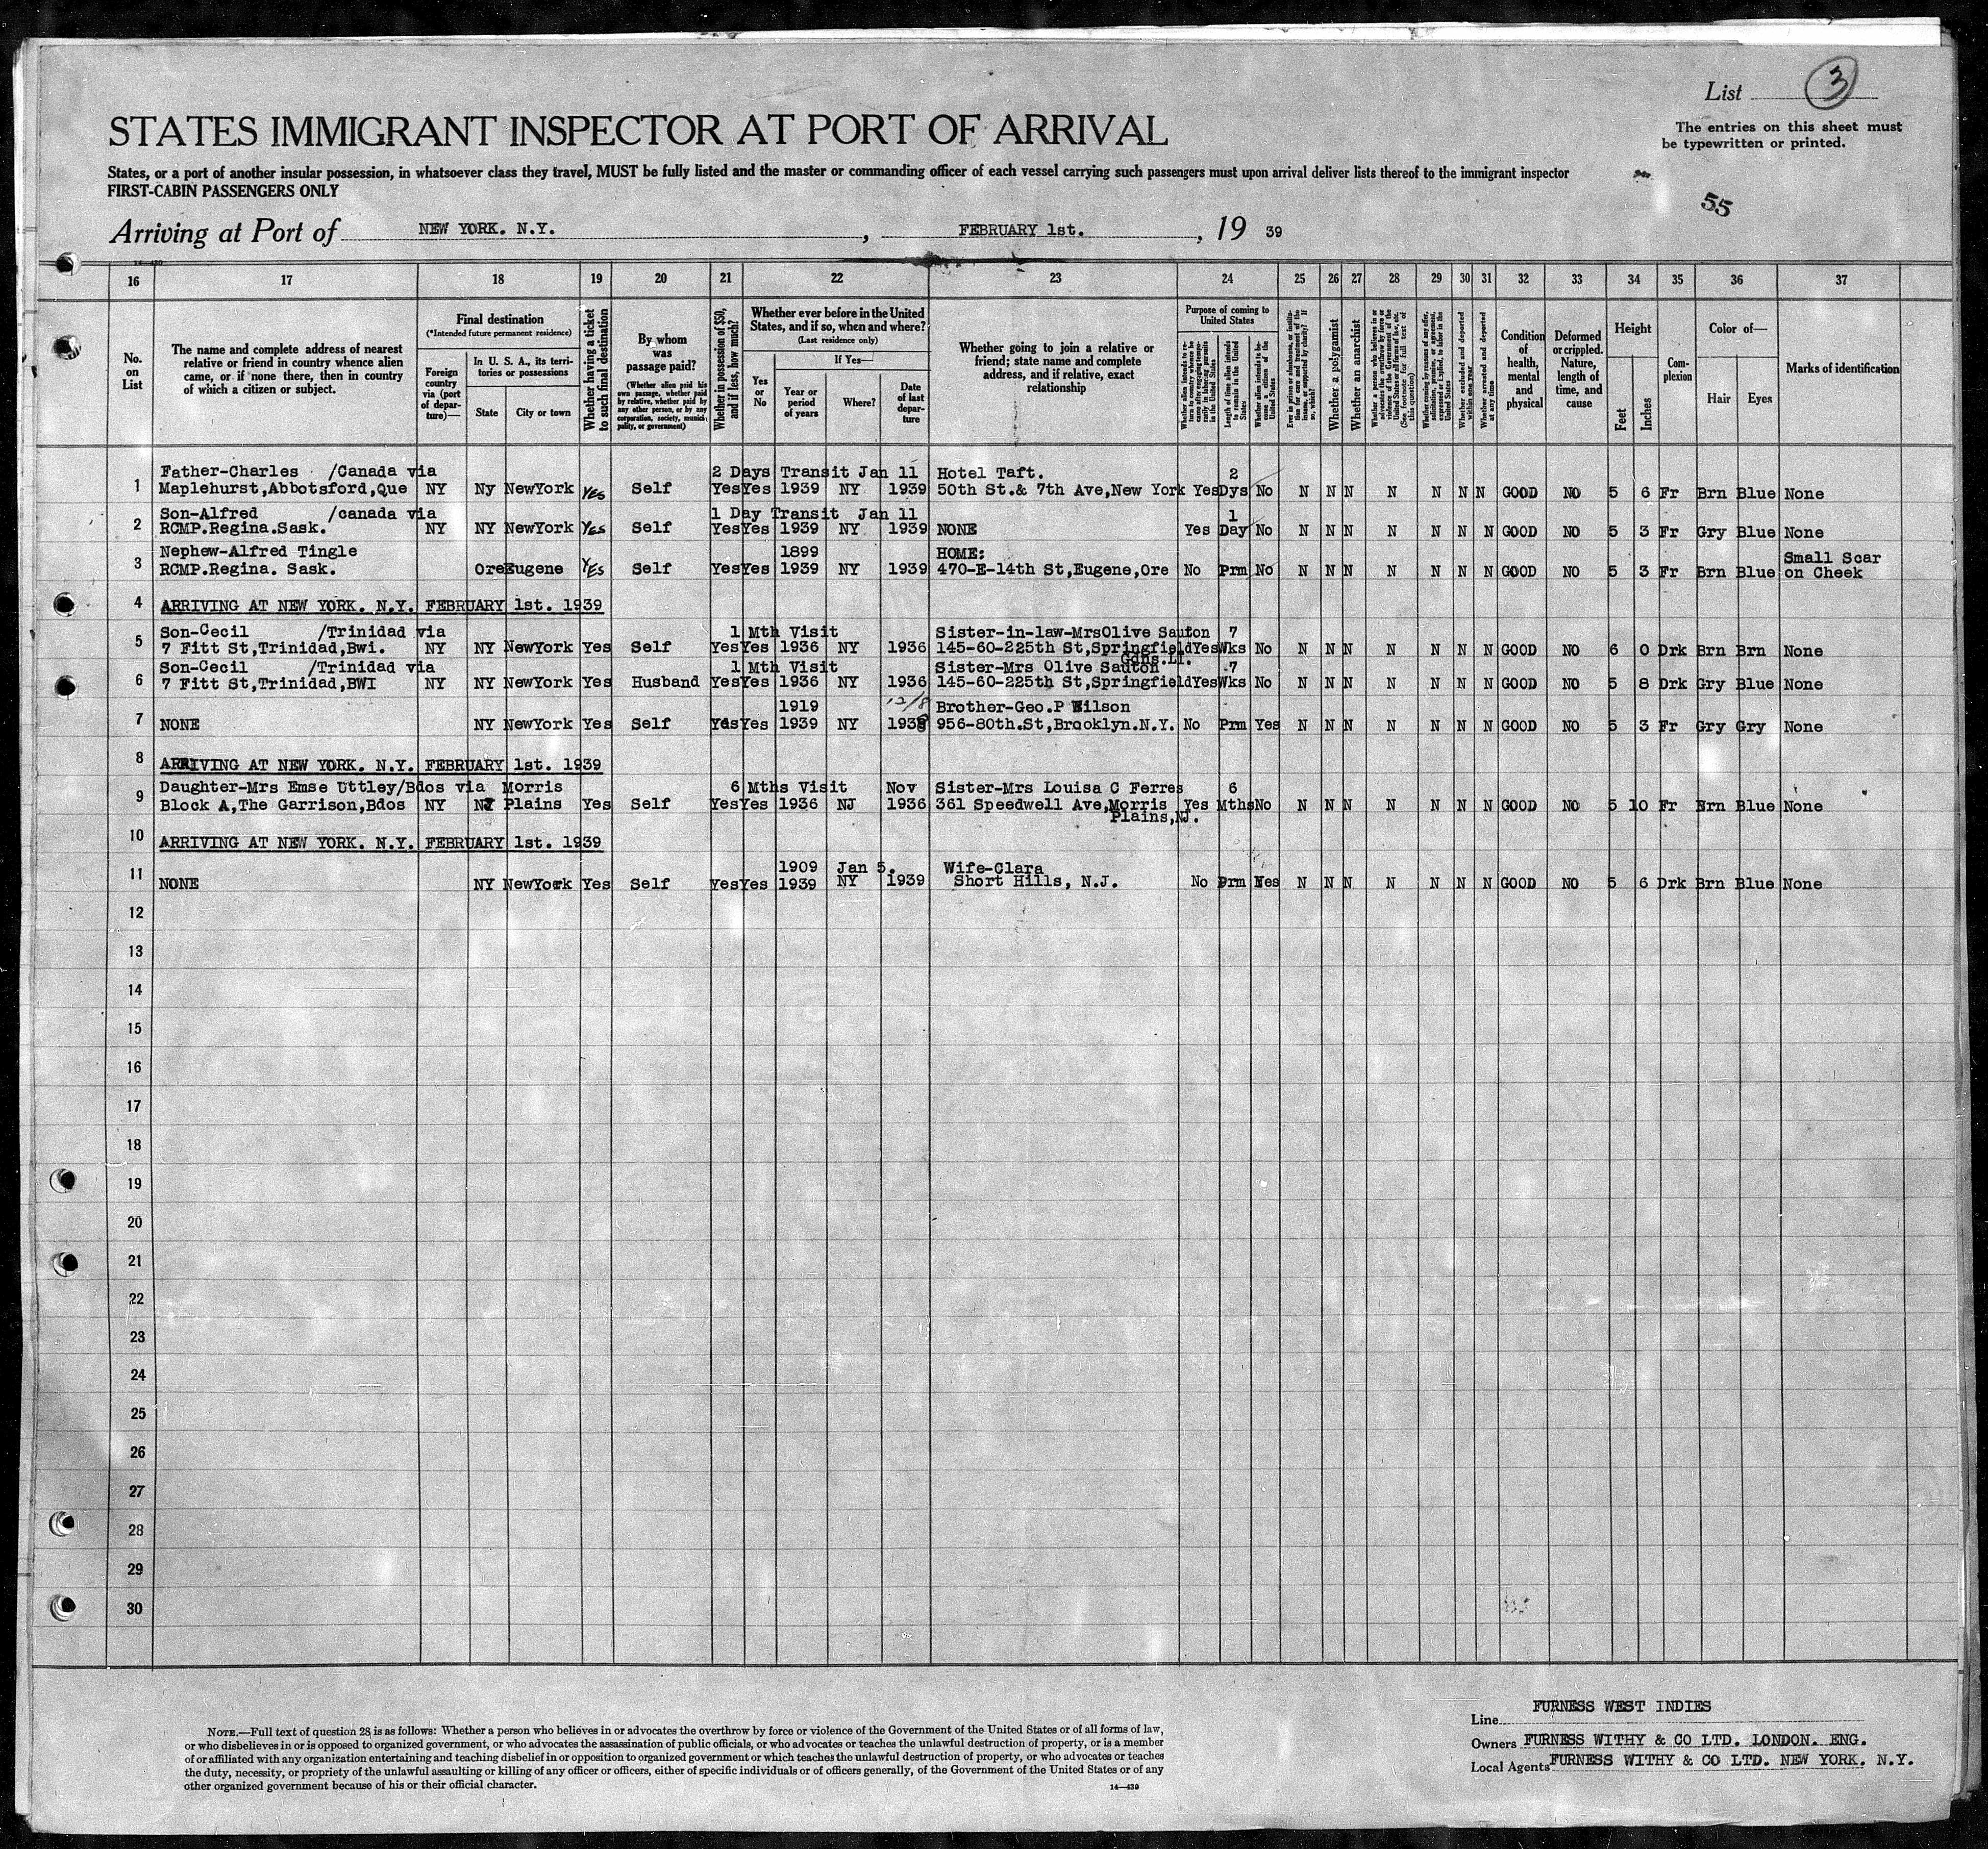 List 3
The entries on this sheet must
be typewritten or printed.
STATES IMMIGRANT INSPECTOR AT PORT OF ARRIVAL
States, or a port of another insular possession, in whatsoever class they travel, MUST be fully listed and the master or commanding officer of each vessel carrying such passengers must upon arrival deliver lists thereof to the immigrant inspector
FIRST-CABIN PASSENGERS ONLY
55
Arriving at Port of NEW YORK. N.Y. , FEBRUARY 1st. , 19 39
16 17 18 19 20 21 22 23 24 25 26 27 28 29 30 31 32 33 34 35 36 37
No. on List
The name and complete address of nearest
relative or friend in country whence alien
came, or if none there, then in country
of which a citizen or subject.
Final destination
(*Intended future permanent residence)
Foreign country via (port of departure)—
In U. S. A., its territories or possessions
State City or town
Whether having a ticket to such final destination
By whom was passage paid?
(Whether alien paid his own passage, whether paid by relative, whether paid by any other person, or by any corporation, society, municipality, or government)
Whether in possession of $50, and if less, how much?
Whether ever before in the United
States, and if so, when and where?
(Last residence only)
Yes or No
If Yes—
Year or period of years
Where?
Date of last departure
Whether going to join a relative or
friend; state name and complete
address, and if relative, exact
relationship
Purpose of coming to United States
Length of time alien intends to remain in the United States
Whether a polygamist
Whether an anarchist
Whether excluded and deported within one year
Whether arrested and deported at any time
Condition of health, mental and physical
Deformed or crippled. Nature, length of time, and cause
Height
Feet Inches
Complexion
Color of—
Hair Eyes
Marks of identification
Father-Charles /Canada via 2 Days Transit Jan 11 Hotel Taft. 2
1 Maplehurst,Abbotsford,Que NY Ny NewYork YES Self Yes Yes 1939 NY 1939 50th St.& 7th Ave,New York Yes Dys No N N N N N N N GOOD NO 5 6 Fr Brn Blue None
Son-Alfred /canada via 1 Day Transit Jan 11 1
2 RCMP.Regina.Sask. NY NY NewYork Yes Self Yes Yes 1939 NY 1939 NONE Yes Day No N N N N N N N GOOD NO 5 3 Fr Gry Blue None
Nephew-Alfred Tingle 1899 HOME: Small Scar
3 RCMP.Regina. Sask. Ore Eugene YES Self Yes Yes 1939 NY 1939 470-E-14th St,Eugene,Ore No Prm No N N N N N N N GOOD NO 5 3 Fr Brn Blue on Cheek
4 ARRIVING AT NEW YORK. N.Y. FEBRUARY 1st. 1939
Son-Cecil /Trinidad via 1 Mth Visit Sister-in-law-MrsOlive Sauton 7
5 7 Fitt St,Trinidad,Bwi. NY NY NewYork Yes Self Yes Yes 1936 NY 1936 145-60-225th St,Springfield Yes Wks No N N N N N N N GOOD NO 6 0 Drk Brn Brn None
Gdns.LI.
Son-Cecil /Trinidad via 1 Mth Visit Sister-Mrs Olive Sauton 7
6 7 Fitt St,Trinidad,BWI NY NY NewYork Yes Husband Yes Yes 1936 NY 1936 145-60-225th St,Springfield Yes Wks No N N N N N N N GOOD NO 5 8 Drk Gry Blue None
1919 12/8 Brother-Geo.P Wilson
7 NONE NY NewYork Yes Self Yes Yes 1939 NY 1938 956-80th.St,Brooklyn.N.Y. No Prm Yes N N N N N N N GOOD NO 5 3 Fr Gry Gry None
8 ARRIVING AT NEW YORK. N.Y. FEBRUARY 1st. 1939
Daughter-Mrs Emse Uttley/Bdos via Morris 6 Mths Visit Nov Sister-Mrs Louisa C Ferres 6
9 Block A,The Garrison,Bdos NY NJ Plains Yes Self Yes Yes 1936 NJ 1936 361 Speedwell Ave,Morris Yes Mths No N N N N N N N GOOD NO 5 10 Fr Brn Blue None
Plains,NJ.
10 ARRIVING AT NEW YORK. N.Y. FEBRUARY 1st. 1939
1909 Jan 5. Wife-Clara
11 NONE NY NewYork Yes Self Yes Yes 1939 NY 1939 Short Hills, N.J. No Prm Yes N N N N N N N GOOD NO 5 6 Drk Brn Blue None
12
13
14
15
16
17
18
19
20
21
22
23
24
25
26
27
28
29
30
NOTE.—Full text of question 28 is as follows: Whether a person who believes in or advocates the overthrow by force or violence of the Government of the United States or of all forms of law,
or who disbelieves in or is opposed to organized government, or who advocates the assassination of public officials, or who advocates or teaches the unlawful destruction of property, or is a member
of or affiliated with any organization entertaining and teaching disbelief in or opposition to organized government or which teaches the unlawful destruction of property, or who advocates or teaches
the duty, necessity, or propriety of the unlawful assaulting or killing of any officer or officers, either of specific individuals or of officers generally, of the Government of the United States or of any
other organized government because of his or their official character.
14—430
Line FURNESS WEST INDIES
Owners FURNESS WITHY & CO LTD. LONDON. ENG.
Local Agents FURNESS WITHY & CO LTD. NEW YORK. N.Y.